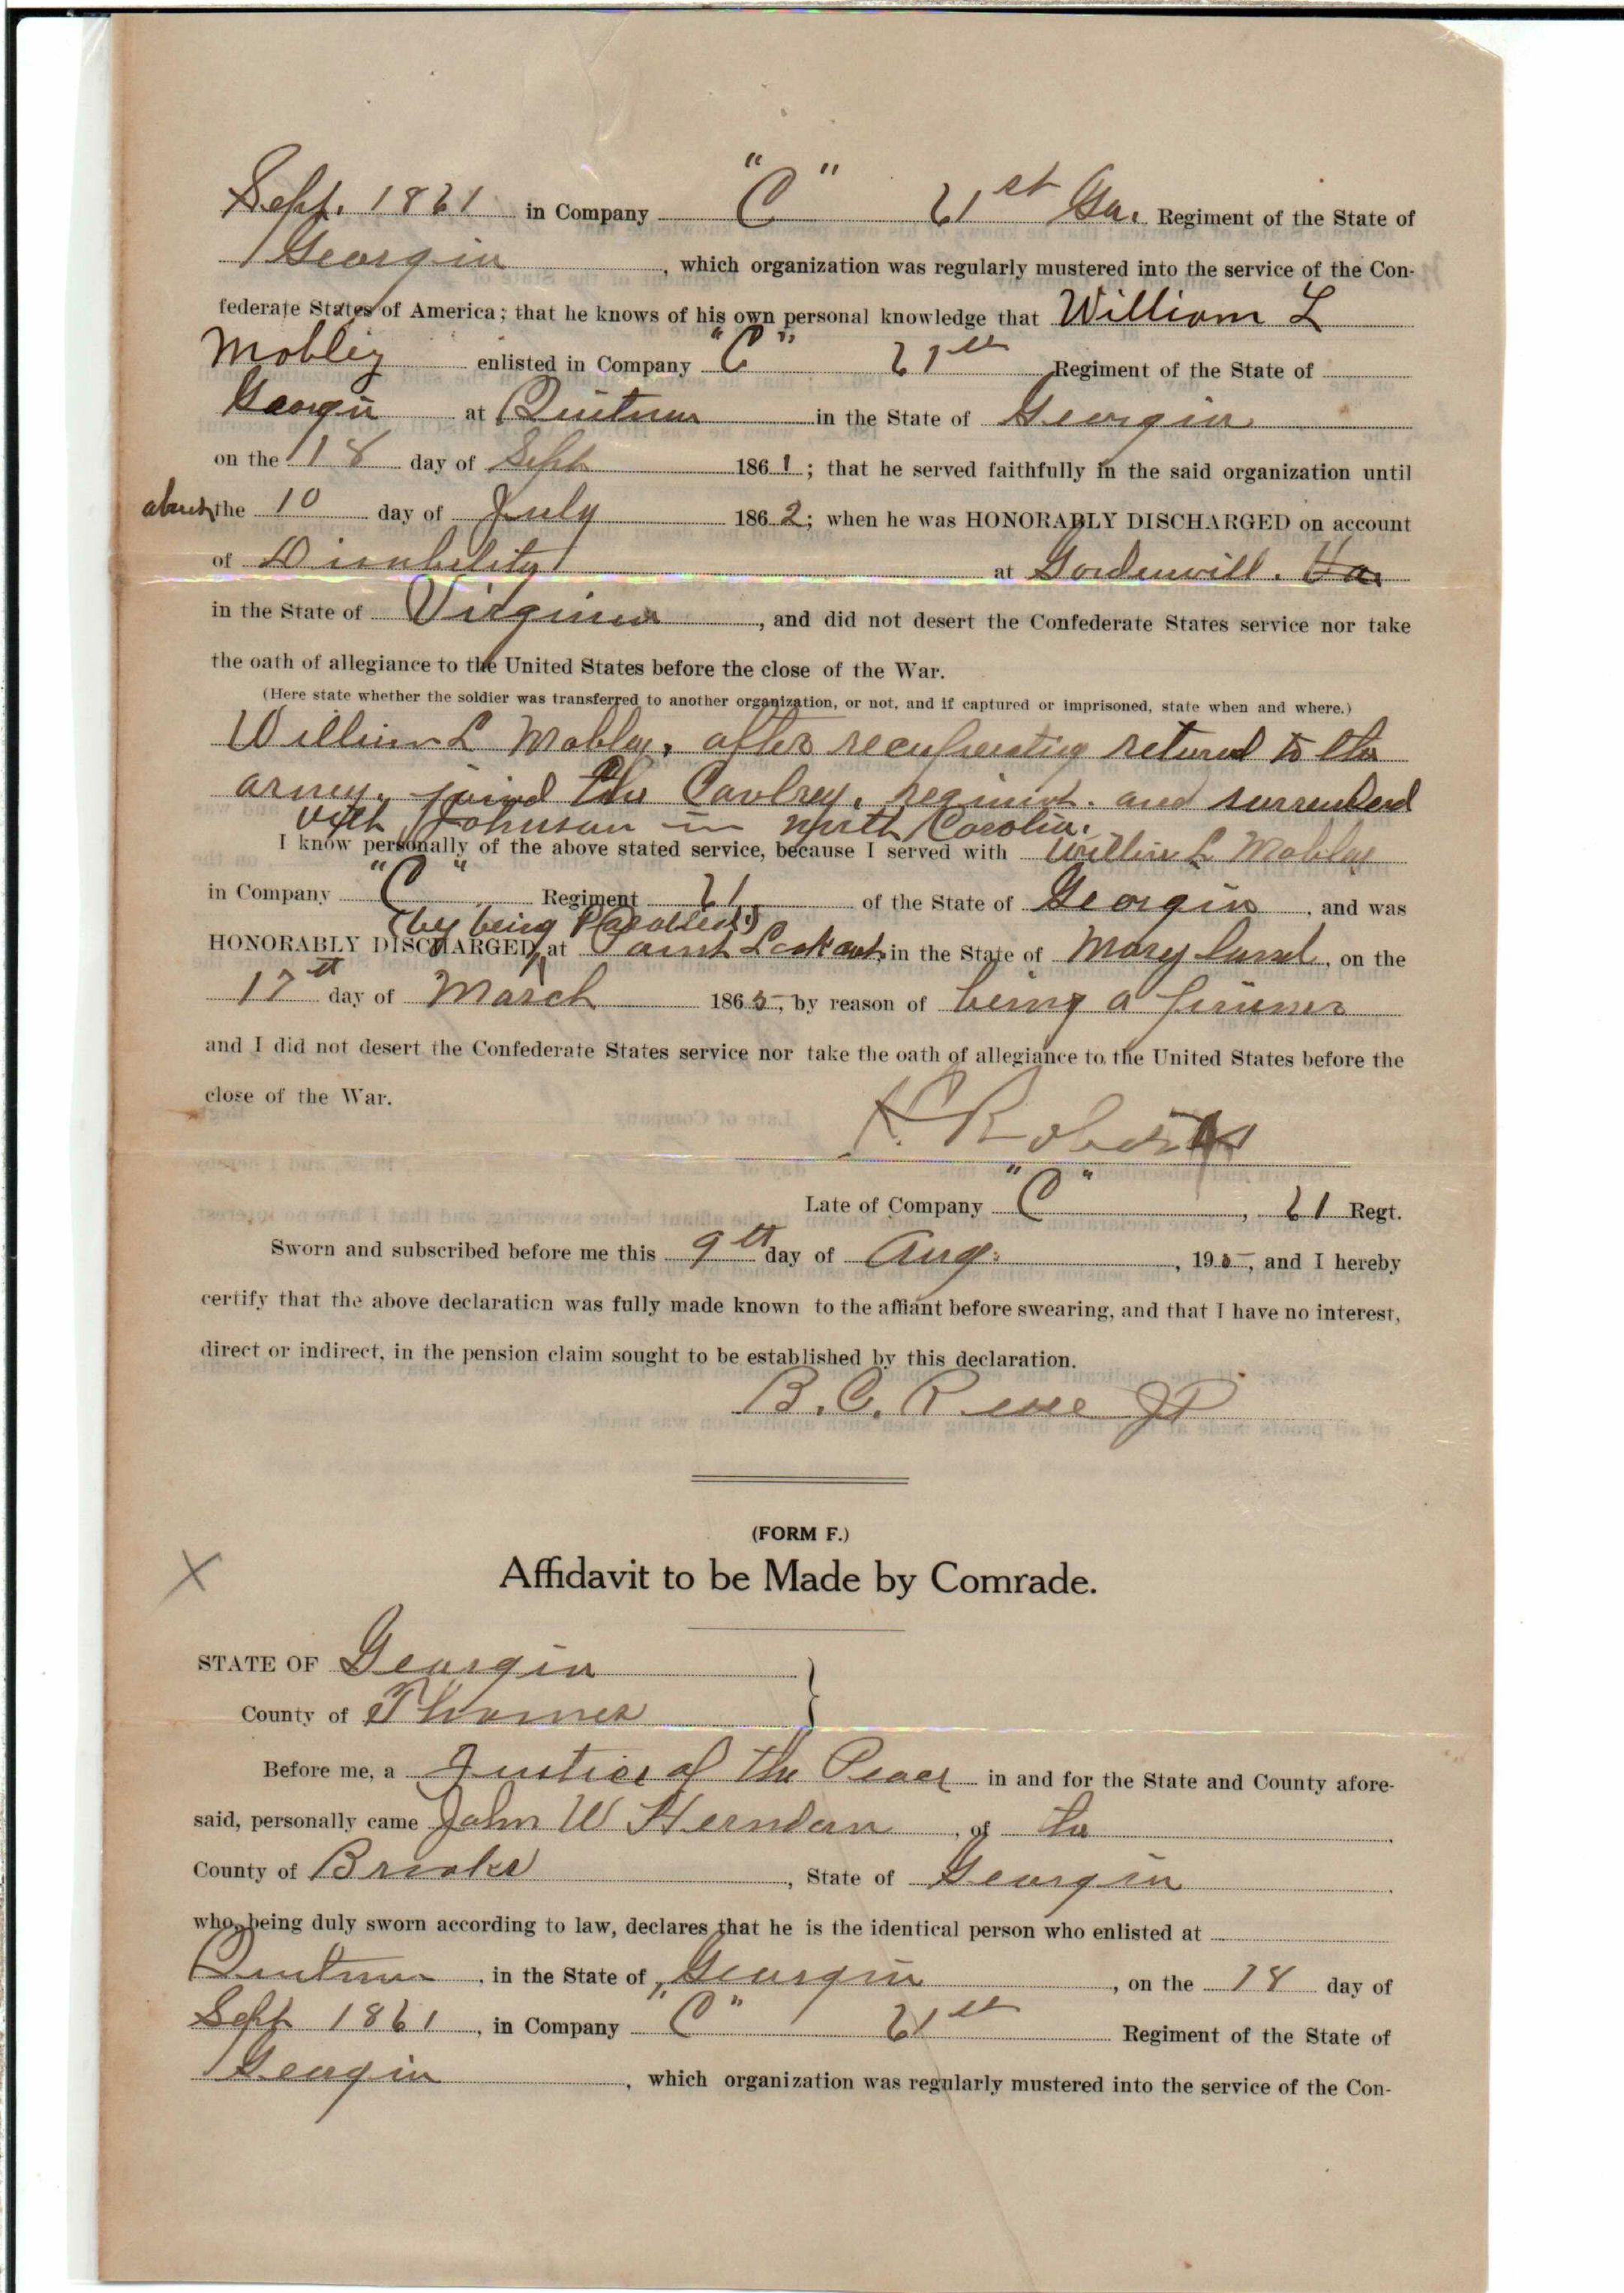 Sept. 1861 in Company "C" 61st Ga. Regiment of the State of
Georgia, which organization was regularly mustered into the service of the Con-
federate States of America; that he knows of his own personal knowledge that William L
Mobley enlisted in Company "C" 61st Regiment of the State of
Georgia at Quitman in the State of Georgia
on the 18 day of Sept 1861; that he served faithfully in the said organization until
about the 10 day of July 1862; when he was HONORABLY DISCHARGED on account
of Disability at Gordenvill. Va.
in the State of Virginia, and did not desert the Confederate States service nor take
the oath of allegiance to the United States before the close of the War.
(Here state whether the soldier was transferred to another organization, or not, and if captured or imprisoned, state when and where.)
William L Mobley, after recuperating returnd to the
army. joind the Cavlrey. regiment. and surrenderd
with Johnson in North Carolia.
I know personally of the above stated service, because I served with William L Mobley
in Company "C" Regiment 61 of the State of Georgia, and was
(by being Parolled)
HONORABLY DISCHARGED, at Point Lookout, in the State of Mary land, on the
17th day of March 1865, by reason of being a prisoner
and I did not desert the Confederate States service nor take the oath of allegiance to the United States before the
close of the War.
Roberts
Late of Company "C", 61 Regt.
Sworn and subscribed before me this 9th day of Aug., 195, and I hereby
certify that the above declaration was fully made known to the affiant before swearing, and that I have no interest,
direct or indirect, in the pension claim sought to be established by this declaration.
B. C. JP
(FORM F.)
X Affidavit to be Made by Comrade.
STATE OF Georgia
County of Thomas
Before me, a Justice of the Peace in and for the State and County afore-
said, personally came John W Herndon, of the
County of Brooks, State of Georgia
who, being duly sworn according to law, declares that he is the identical person who enlisted at
Quitman, in the State of Georgia, on the 18 day of
Sept 1861, in Company "C" 61st Regiment of the State of
Georgia, which organization was regularly mustered into the service of the Con-